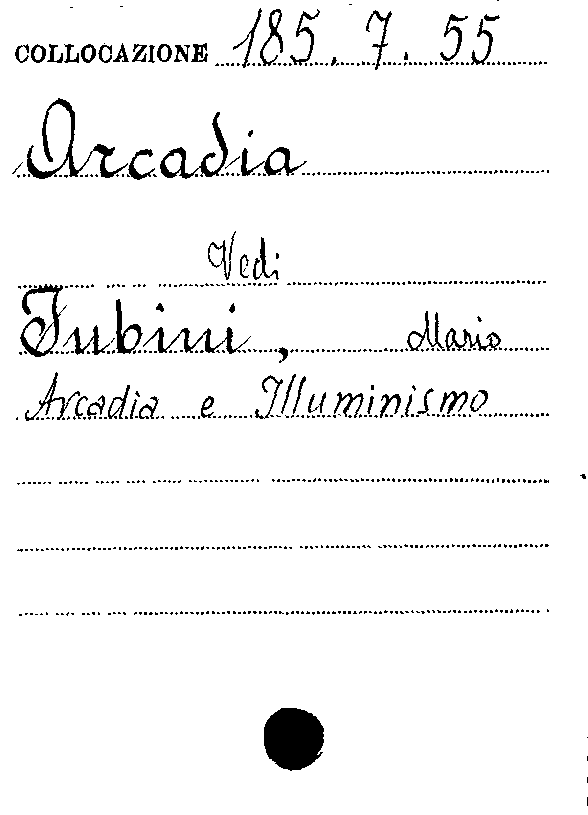 COLLOCAZIONE 185.7.55
Arcadia
Vedi
Fubini, Mario
Arcadia e Illuminismo